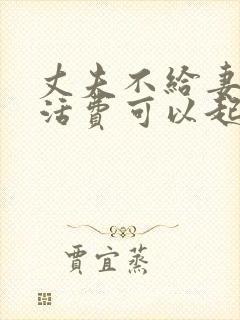 丈夫不给妻
活費可以起
賈宜蒸